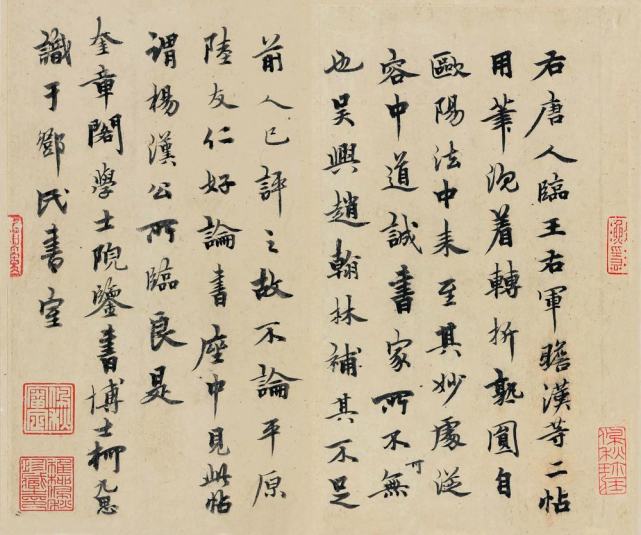 右唐人臨王右軍瞻漢等二帖
用筆沉着轉折熟圓自
歐陽法中來至其妙處從
容中道誠書家所不可無
也吴興趙翰林補其不足
前人已評之故不論平原
陸友仁好論書座中見此帖
謂楊漢公所臨良是
奎章閣學士院鑒書博士柯九思
識于鄧氏書室